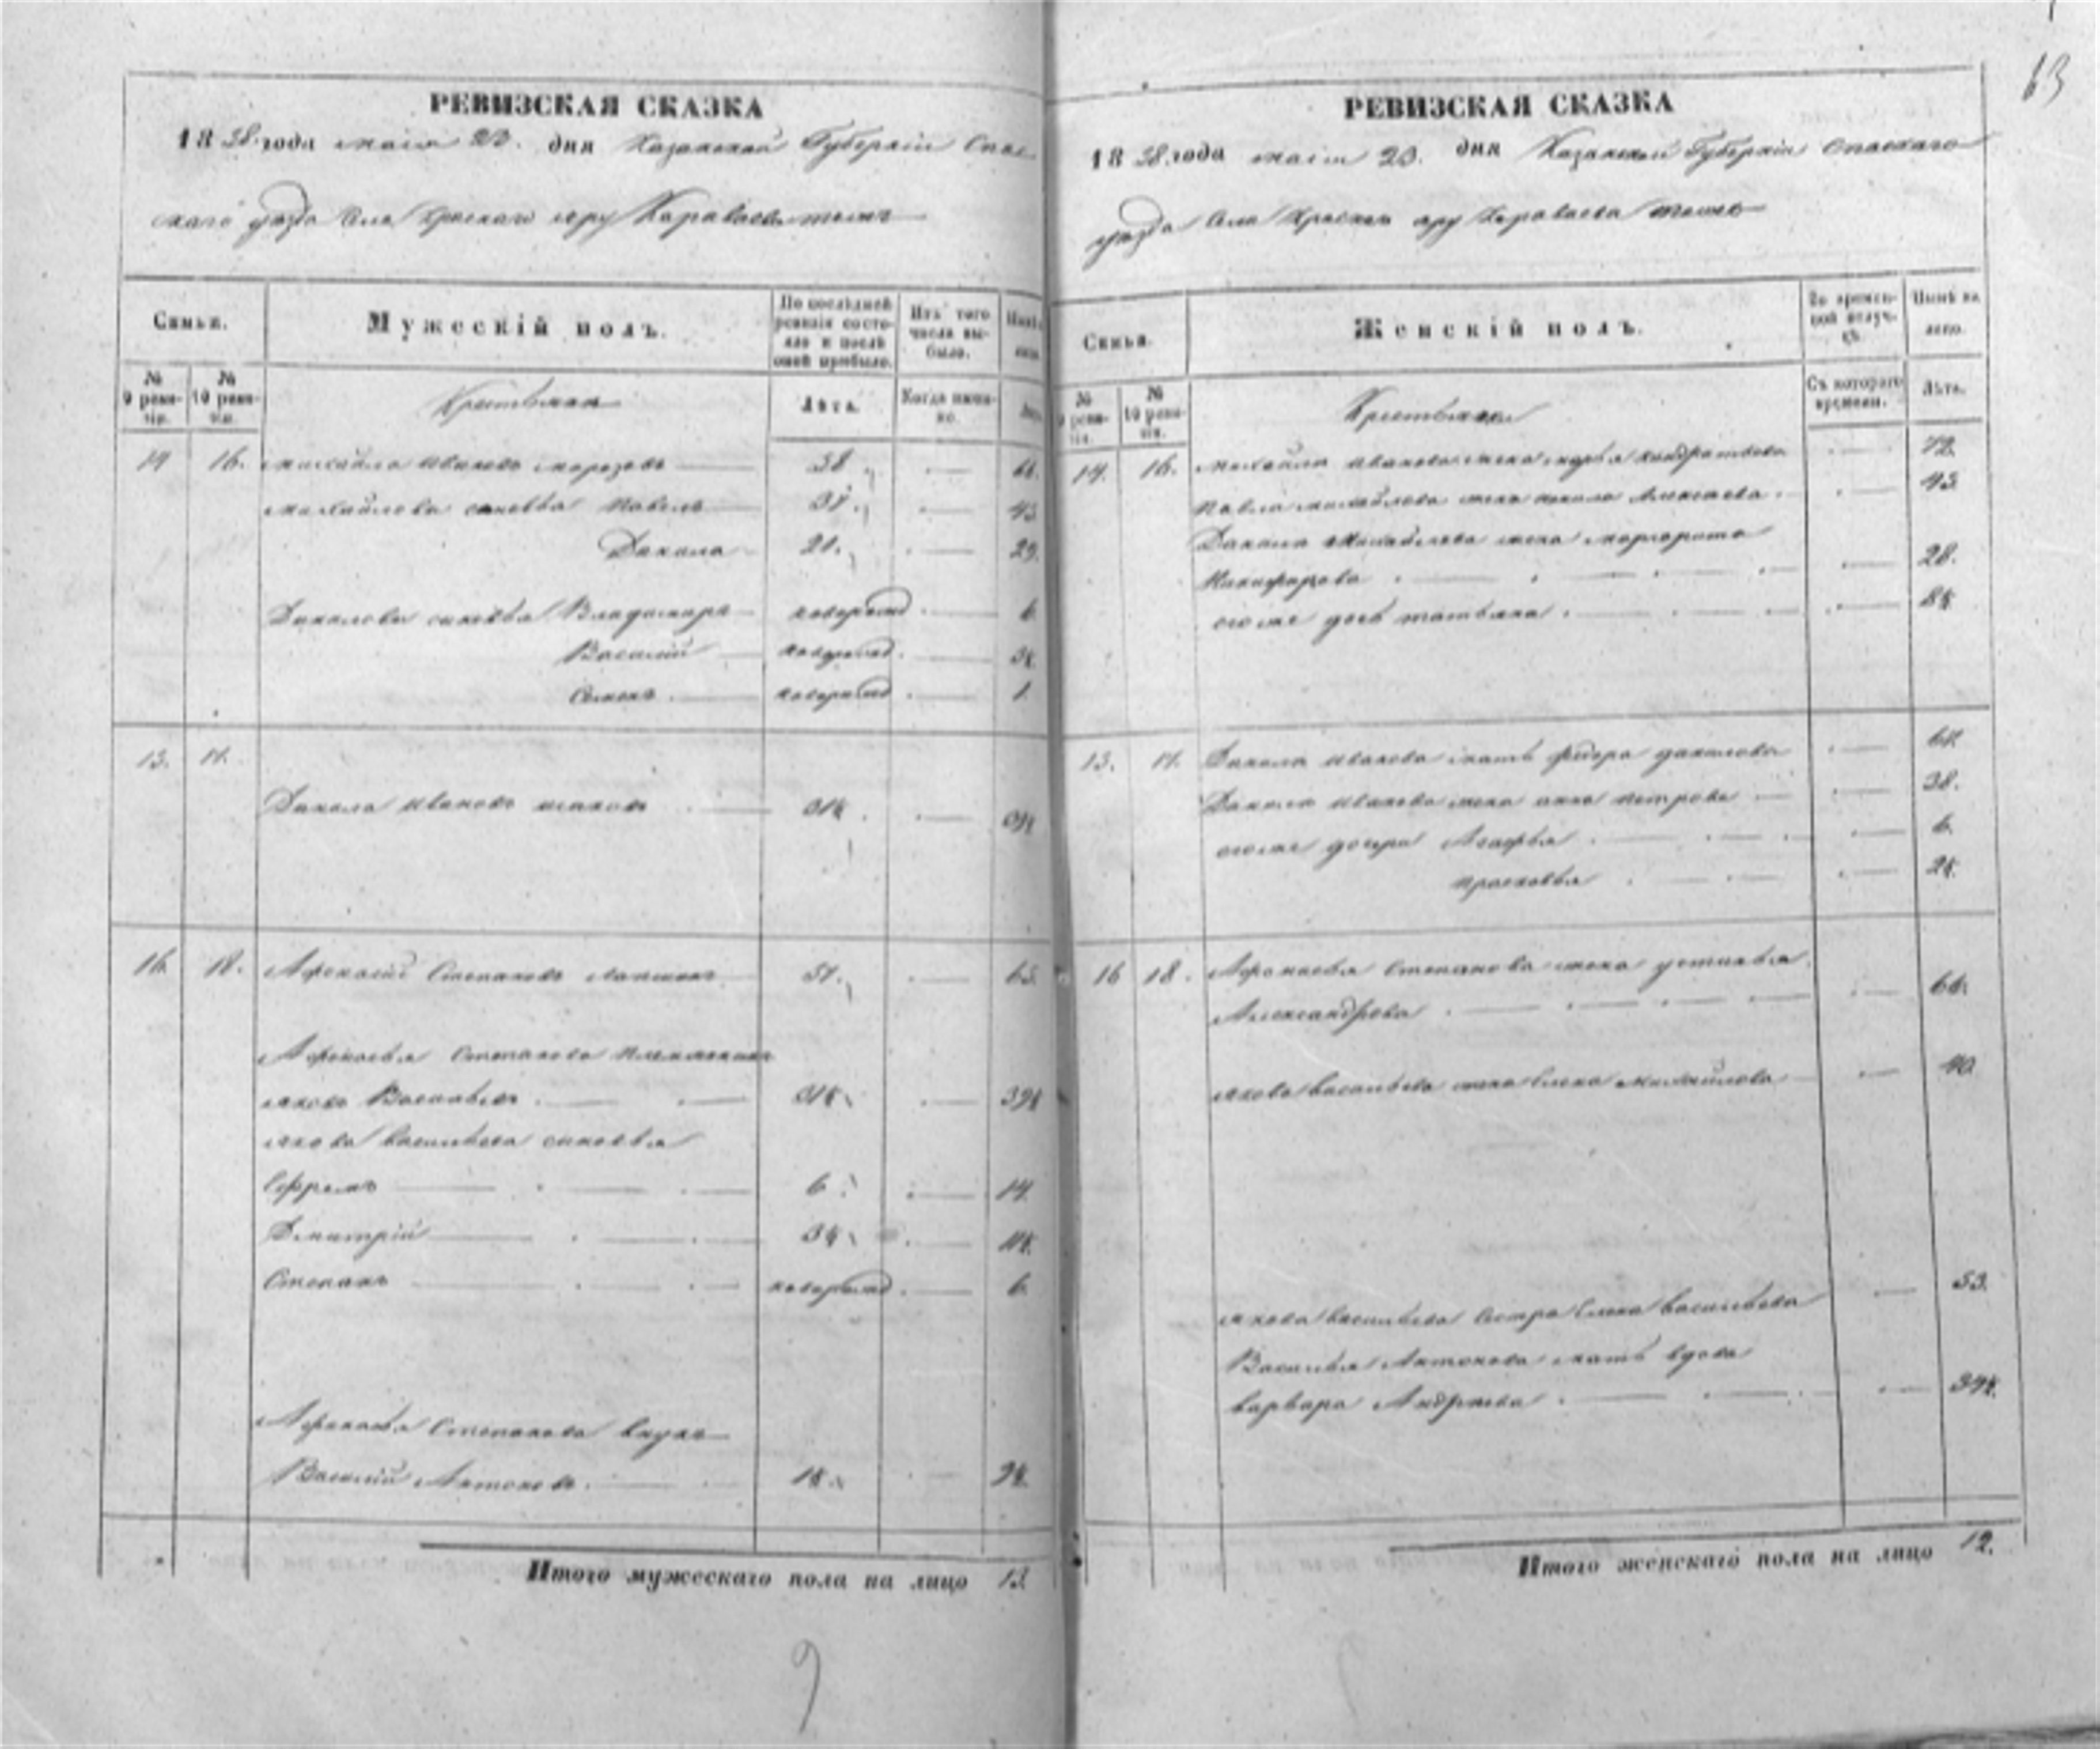 63
РЕВИЗСКАЯ СКАЗКА
1858 года маія 23. дня Казанской Губерніи Спас
скаго уезда Села Краснаго яру Караваева тожъ
Семьи.
Мужескій полъ.
По послѣдней ревизіи состояло и послѣ оной прибыло.
Изъ того числа выбыло.
Нынѣ
№ 9 ревизіи.
№ 10 ревизіи.
Лѣта.
Когда именно.
Крестьяня
14 16. Михайла Ивановъ Морозовъ 58 66.
Михайлова сыновья Павелъ 43
Данила 21. 29.
Даниловы сыновья Владимиръ новорожд 6
Василий новорожд 3½
Семенъ новорожд 1.
15. 17.
Данила Ивановъ 31½ 39½
16. 18. Афонасий Степановъ Лапшинъ 57. 65.
Афонасья Степанова племянникъ
Яковъ Васильевъ 31½ 39½
Якова Васильева сыновья
Ефремъ 6 14.
Дмитрій 3½ 11½
Степанъ новорожд 6
Афонасья Степанова внукъ
Василий Антоновъ 1½ 9½
Итого мужескаго пола на лицо 13
9
РЕВИЗСКАЯ СКАЗКА
1858 года маія 23. дня Казанской Губерніи Спаскаго
уезда Села Краснаго яру Караваева тожъ
Семьи.
Женскій полъ.
Во временной отлучкѣ.
Нынѣ на лицо.
№ 9 ревизіи.
№ 10 ревизіи.
Съ котораго времени.
Лѣта.
Крестьяня
14. 16. Михайла Иванова жена Марья Кондратьева 72.
Павла Михайлова жена Алексеева 43
Данила Михайлова жена Маргарита
Никифорова 28.
его же дочь Татьяна 8½
15. 17. Данила Иванова мать Данилова
Данила Иванова жена Анна Петрова 38.
его же дочери Агафья 6.
Прасковья 2½
16 18. Афонасья Степанова жена Устинья
Александрова 66.
Якова Васильева жена Елена Михайлова 40
Якова Васильева сестра Елена Васильева 53.
Василья Антонова мать вдова
Варвара Андреева 39½
Итого женскаго пола на лицо 12.